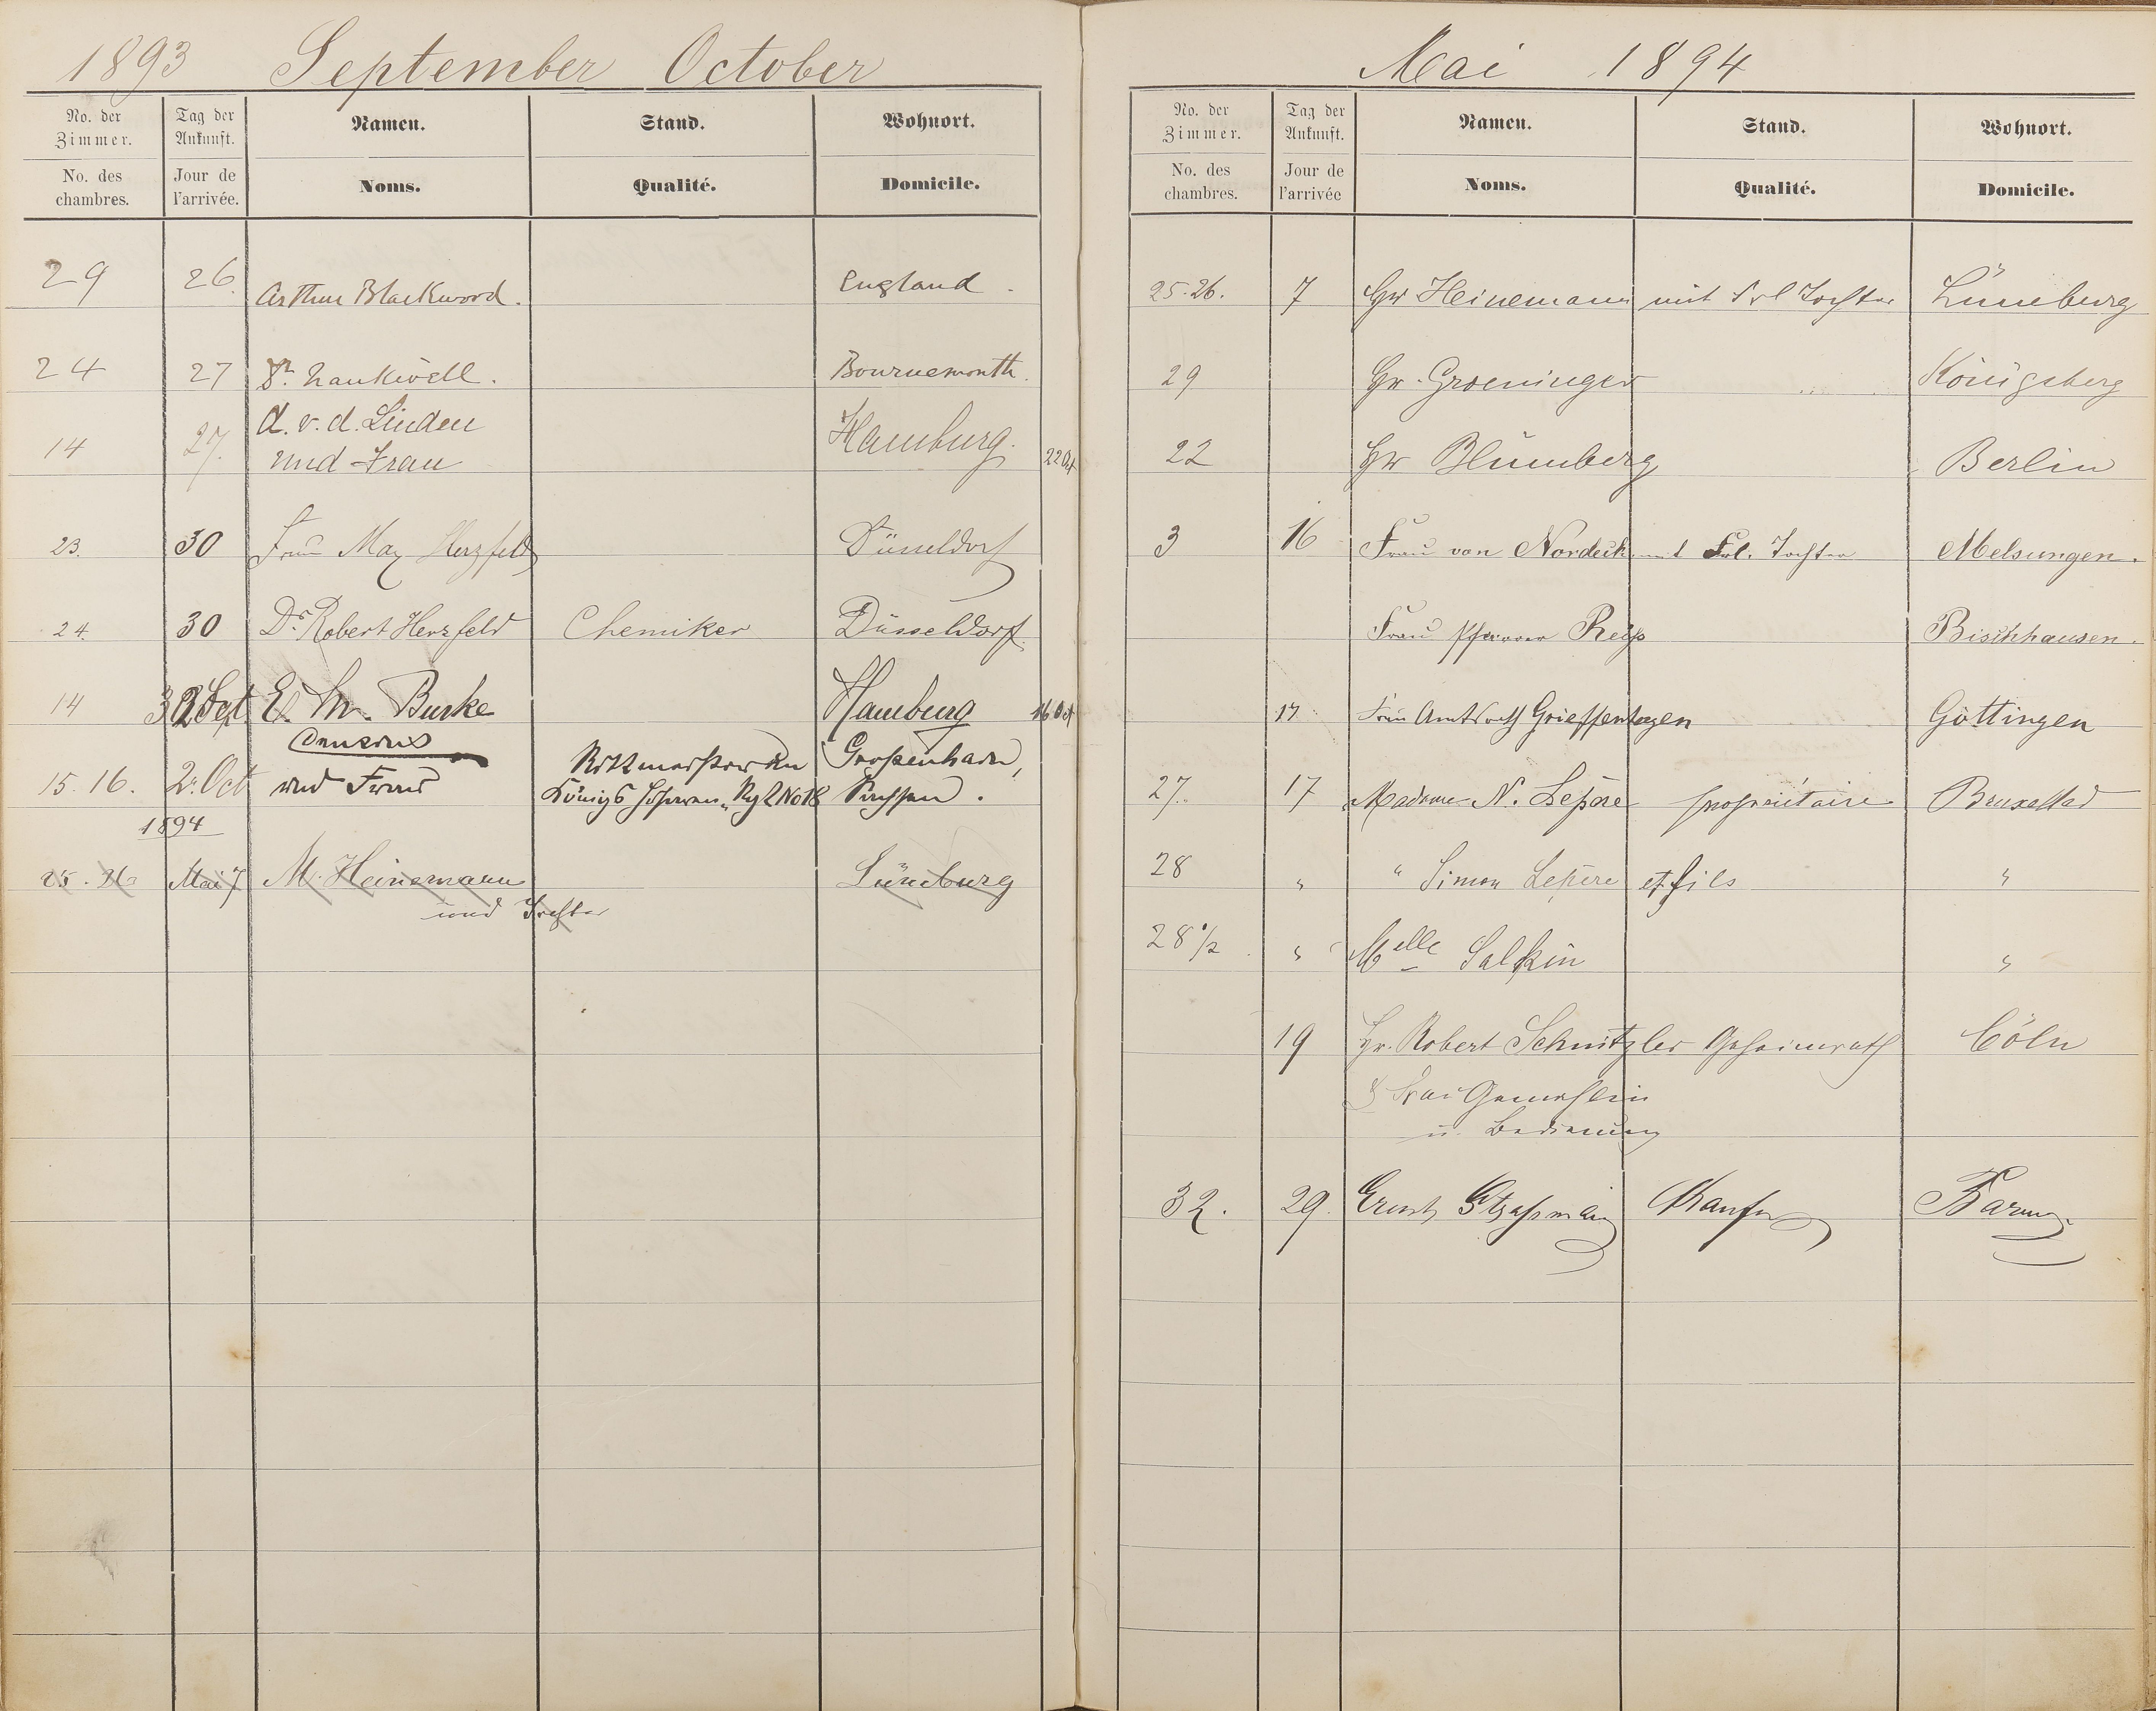 1893 September October
No. der Zimmer. Tag der Ankunft. Namen. Stand. Wohnort.
No. des chambres. Jour de l'arrivée. Noms. Qualité. Domicile.
29 26. Arthur Blackwood. England.
24 27 Bournemouth.
d. v. d. Linden
14 27. und Frau Hamburg. 22 Oct
23. 30 Frau Max Herzfeld Düsseldorf
24. 30 Dr. Robert Herzfeld Chemiker Düsseldorf
14 E. M. Burke Hamburg 16 Oct
Rittmeister im Großenhain,
15. 16. 2. Oct und Frau Königs Husaren Rg 2 No 18 Sachsen.
1894
25. 26 Mai 7 M. Heinemann Lüneburg
und Tochter
Mai 1894
No. der Zimmer. Tag der Ankunft. Namen. Stand. Wohnort.
No. des chambres. Jour de l'arrivée Noms. Qualité. Domicile.
25-26. 7 Hr Heinemann mit Frl Tochter Lüneburg
29 Hr. Groeninger Königsberg
22 Hr Blumberg Berlin
3 16 Frau von Nordeck mit Frl. Tochter Melsungen.
Frau Pfarrer Reiß Bischhausen.
17 Frau Amtsrath Grieffenhagen Göttingen
27. 17 Madame N. Lepère propriétaire Bruxelles
28 " " Simon Lepère et fils "
28 1/2 " Melle Salkin "
19 Hr. Robert Schnitzler Geheimrath Cöln
& Frau Gemahlin
u. Bedienung
32. 29. Ernst Barmen